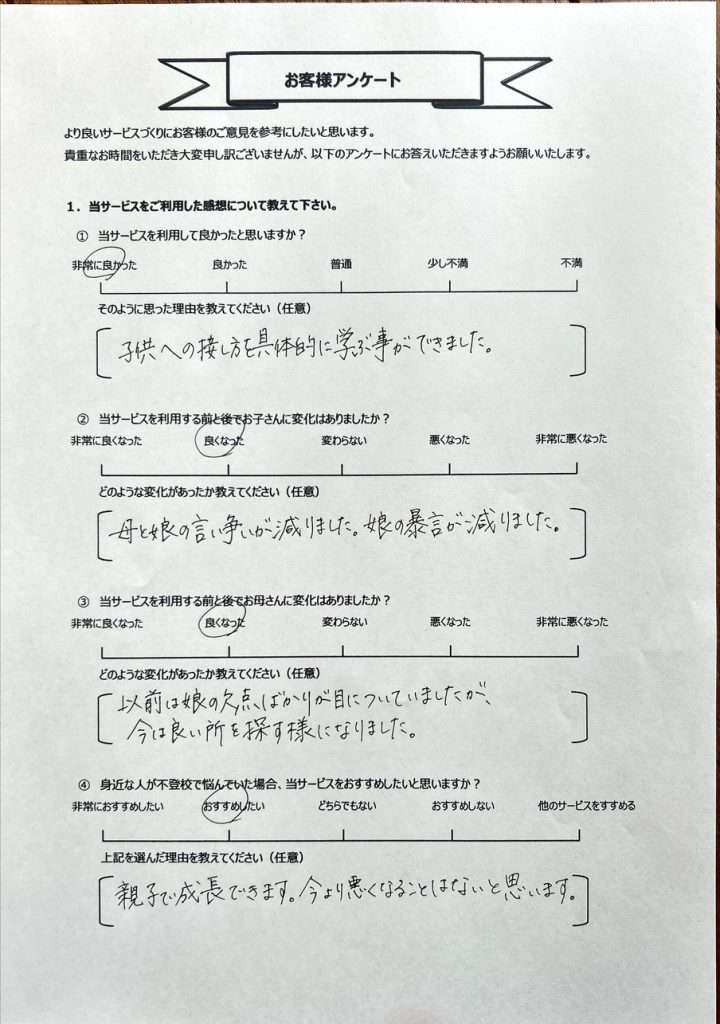 お客様アンケート
より良いサービスづくりにお客様のご意見を参考にしたいと思います。
貴重なお時間をいただき大変申し訳ございませんが、以下のアンケートにお答えいただきますようお願いいたします。
１．当サービスをご利用した感想について教えて下さい。
① 当サービスを利用して良かったと思いますか？
非常に良かった 良かった 普通 少し不満 不満
そのように思った理由を教えてください（任意）
子供への接し方を具体的に学ぶ事ができました。
② 当サービスを利用する前と後でお子さんに変化はありましたか？
非常に良くなった 良くなった 変わらない 悪くなった 非常に悪くなった
どのような変化があったか教えてください（任意）
母と娘の言い争いが減りました。娘の暴言が減りました。
③ 当サービスを利用する前と後でお母さんに変化はありましたか？
非常に良くなった 良くなった 変わらない 悪くなった 非常に悪くなった
どのような変化があったか教えてください（任意）
以前は娘の欠点ばかりが目についていましたが、
今は良い所を探す様になりました。
④ 身近な人が不登校で悩んでいた場合、当サービスをおすすめしたいと思いますか？
非常におすすめしたい おすすめしたい どちらでもない おすすめしない 他のサービスをすすめる
上記を選んだ理由を教えてください（任意）
親子で成長できます。今より悪くなることはないと思います。